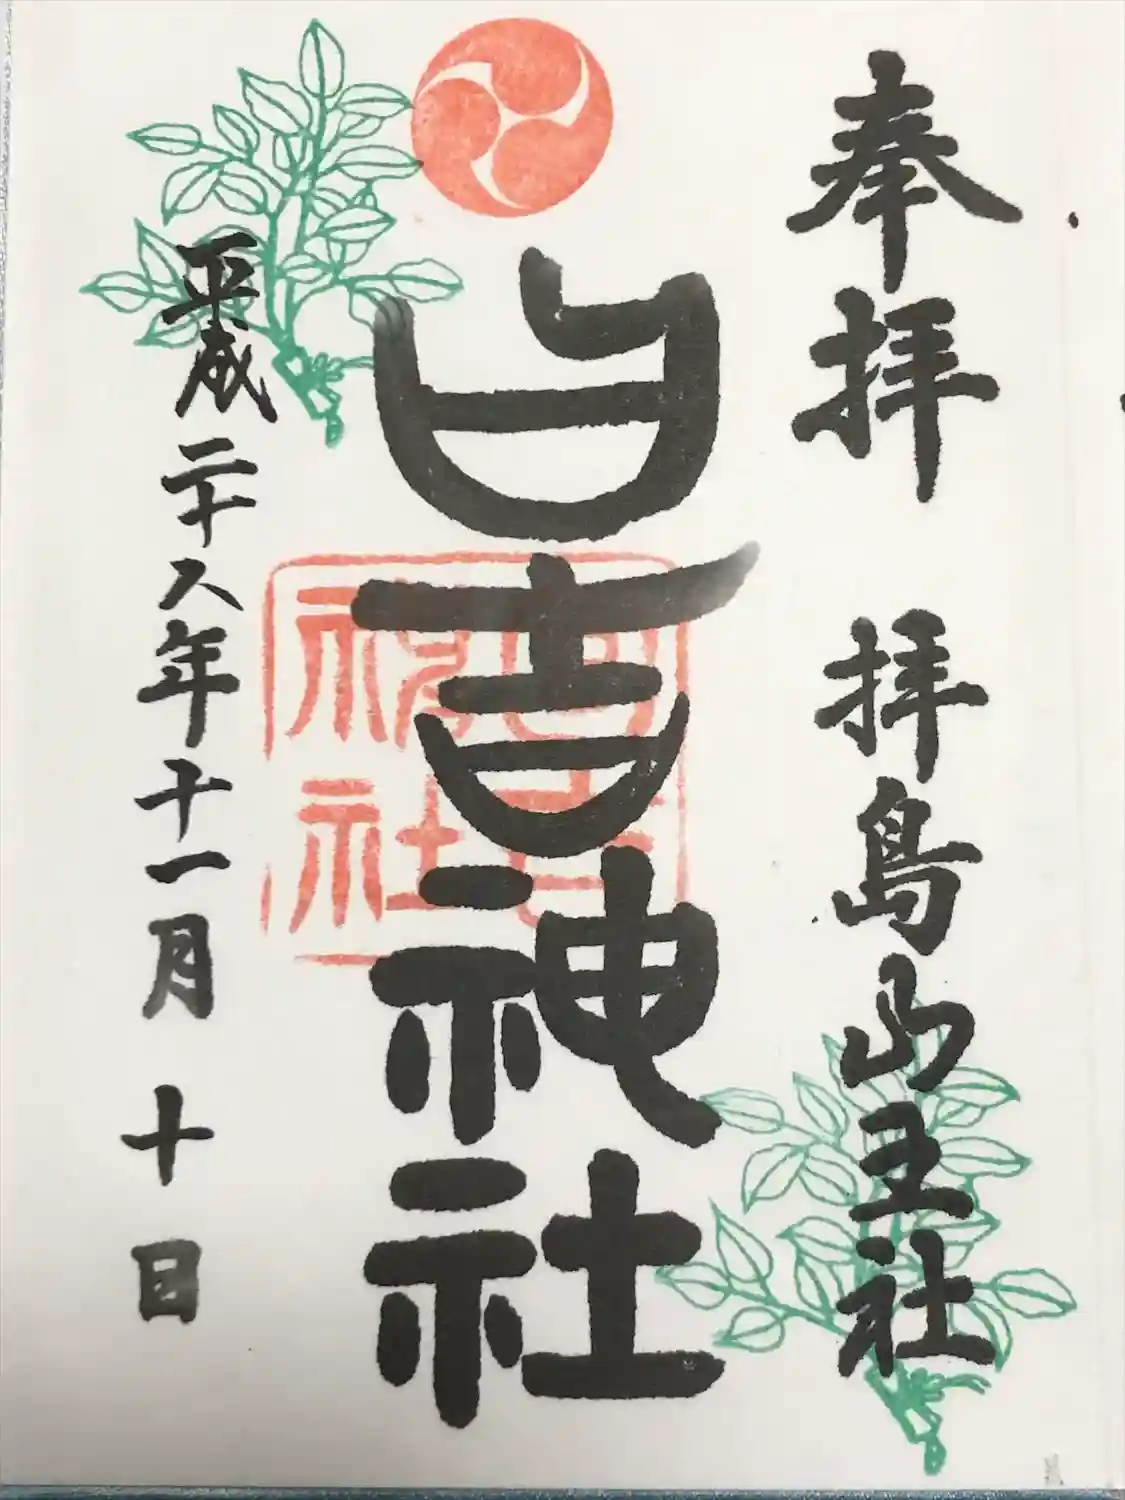 奉拝 拝島山王社
日吉神社
日吉
神社
平成二十八年十一月十日